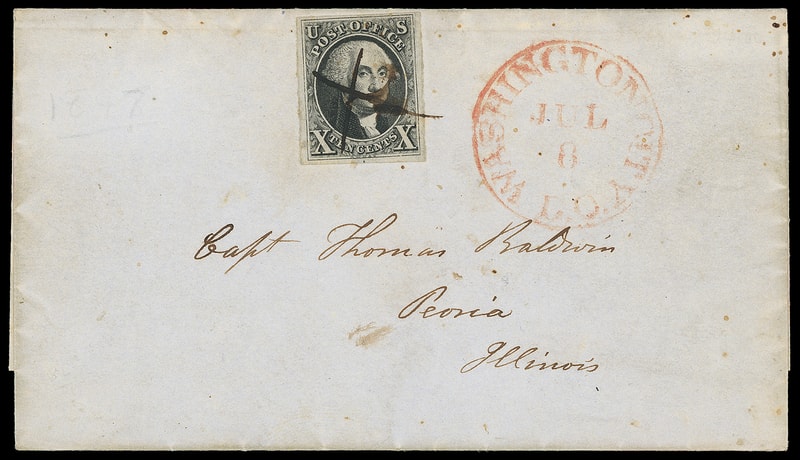 U S
POST OFFICE
X TEN CENTS X
WASHINGTON CITY
JUL
8
D.C.
Capt Thomas Baldwin
Peoria
Illinois